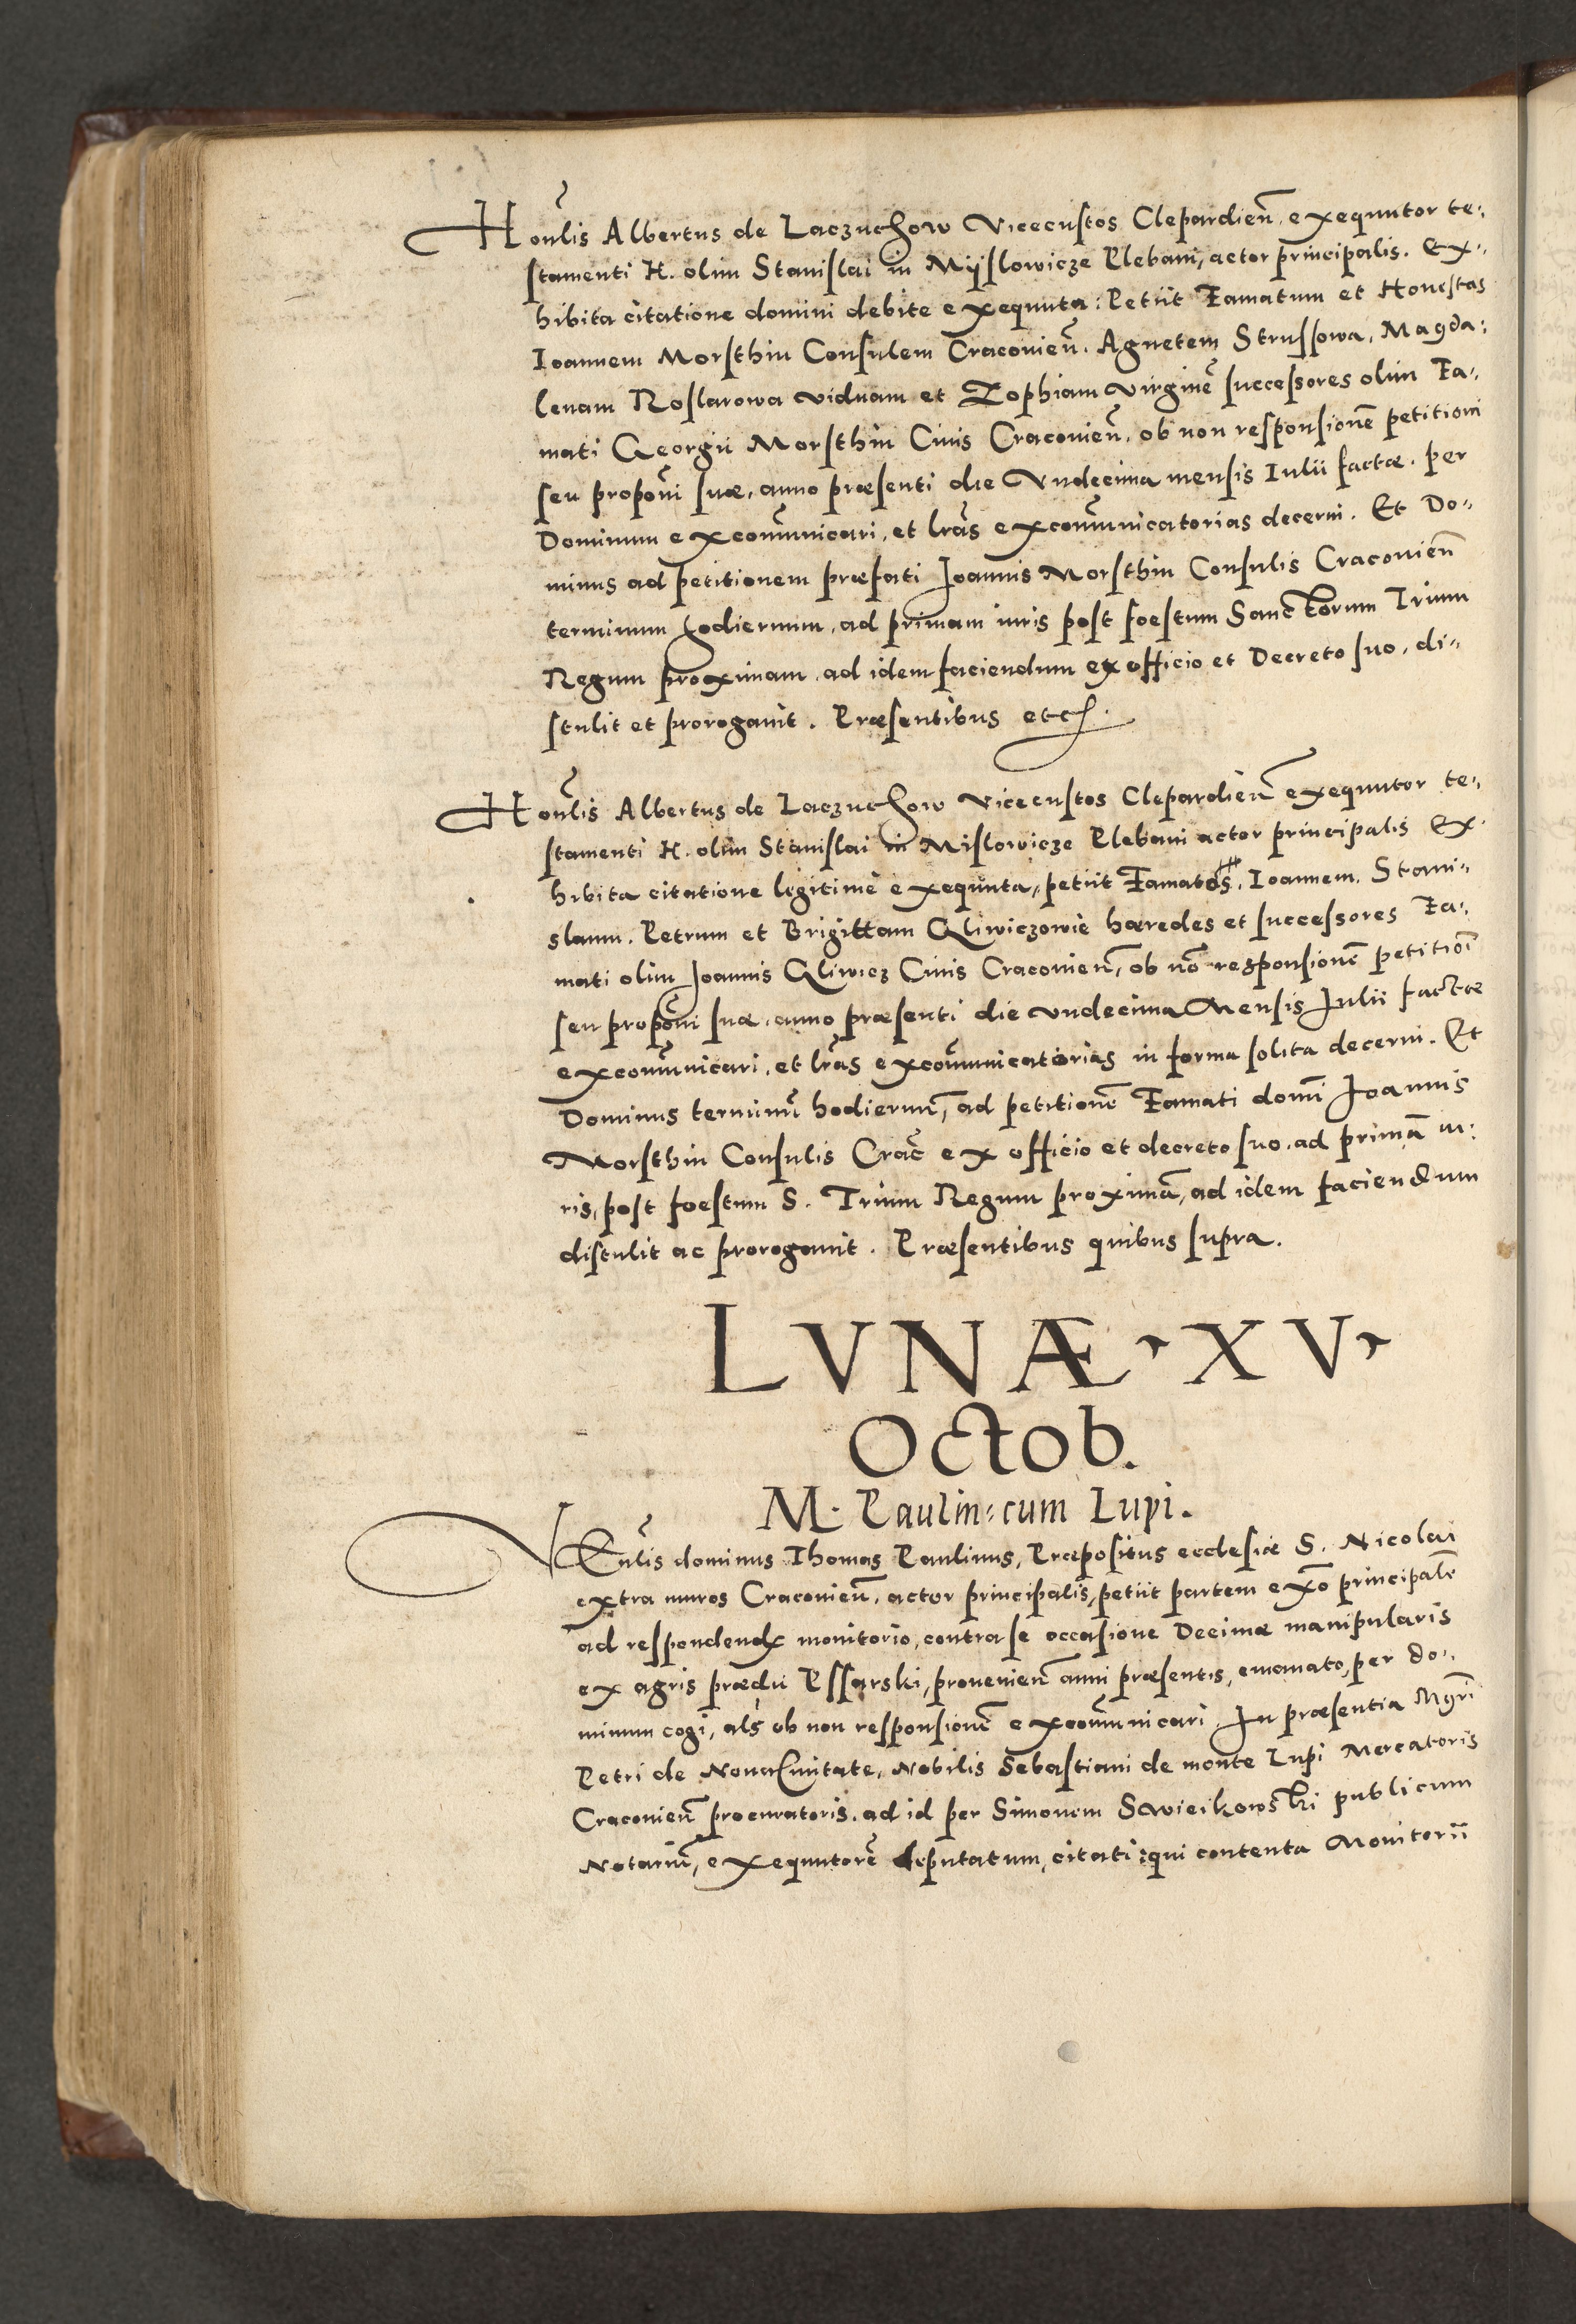 Honˀlis Albertus de Laczuchow Vicecustos Clepardień. exequutor te:
stamenti H. olim Stanislai in Mÿslowicze Plebani, actor principalis. Ex:
hibita citatione domini debite exequuta: Petiit Famatum et Honestas
Ioannem Morsthin Consulem Cracovień. Agnetem Strussowa, Magda:
lenam Roslarowa viduam et Zophiam virginē successores olim Fa:
mati Georgii Morsthin Civis Cracovień. ob non responsionē petitioni
seu propōni suæ, anno præsenti die Vndecima mensis Iulii factæ. per
Dominum excōmunicari, et lrās excōmunicatorias decerni. Et Do:
minus ad petitionem præfati Joannis Morsthin Consulis Cracovień
terminum hodiernum, ad primam iuris post foestum Sanctorum Trium
Regum proximam, ad idem faciendum ex officio et Decreto suo, di:
stulit et prorogavit. Præsentibus etc.
Honˀlis Albertus de Laczuchow Vicecustos Clepardień exequutor te:
stamenti H. olim Stanislai in Mislowicze Plebani actor principalis Ex:
hibita citatione legitime exequuta, petiit Famatos, Ioannem. Stani:
slaum. Petrum et Brigittam Gliwiczowie hæredes et successores Fa:
mati olim Joannis Gliwicz Civis Cracovień, ob nō responsionē petitiōi
seu propōni suæ, anno præsenti die vndecima Mensis Julii factæ
excōmunicari, et lrās excōmunicatorias in forma solita decerni. Et
Dominus terminū hodiernū, ad petitionē Famati domī Joannis
Morsthin Consulis Crac̄ ex officio et decreto suo, ad primā iu:
ris, post foestum S. Trium Regum proximā, ad idem faciendum
distulit ac prorogavit. Præsentibus quibus supra.
LVNÆ, XV,
Octob.
M. Paulin: cum Lupi.
VEnˀlis dominus Thomas Paulinus, Præpositus ecclesiæ S. Nicolai
extra muros Cracovień, actor principalis, petiit partem exō principalē
ad respondend monitorio, contra se occasione Decimæ manipularis
ex agris prædii Pssarski, provenień anni præsentis, emanato, per do:
minum cogi, als ob non responsionē excōmunicari. In præsentia Mgrī
Petri de Nova Civitate, Nobilis Sebastiani de monte Lupi Mercatoris
Cracovień procuratoris, ad id per Simonem Swieikowski publicum
Notariū, exequutorē deputatum, citati: qui contenta Monitorii